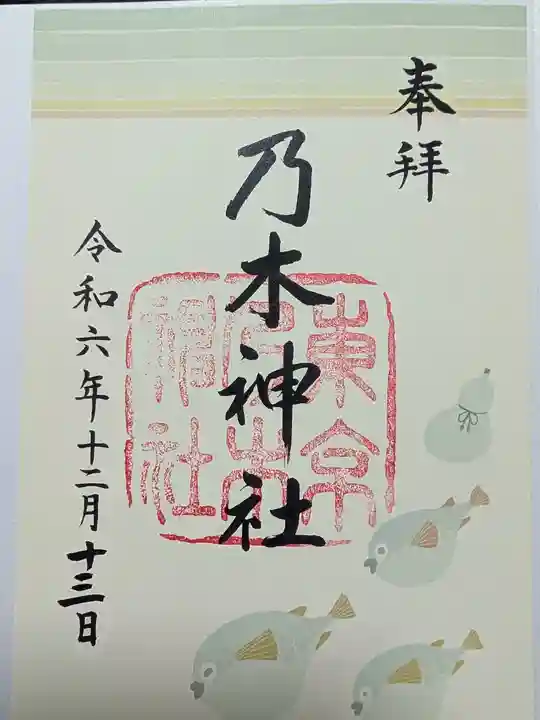 奉拝
乃木神社
東京
乃木
神社
令和六年十二月十三日